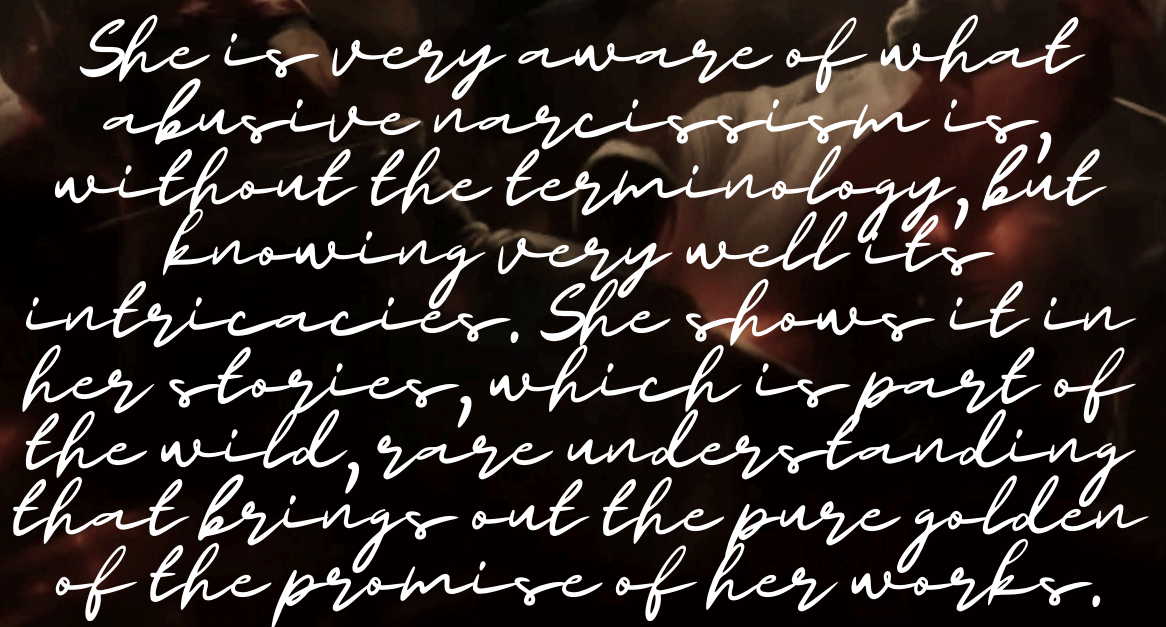 She is very aware of what
abusive narcissism is,
without the terminology, but
knowing very well its
intricacies. She shows it in
her stories, which is part of
the wild, rare understanding
that brings out the pure golden
of the promise of her works.